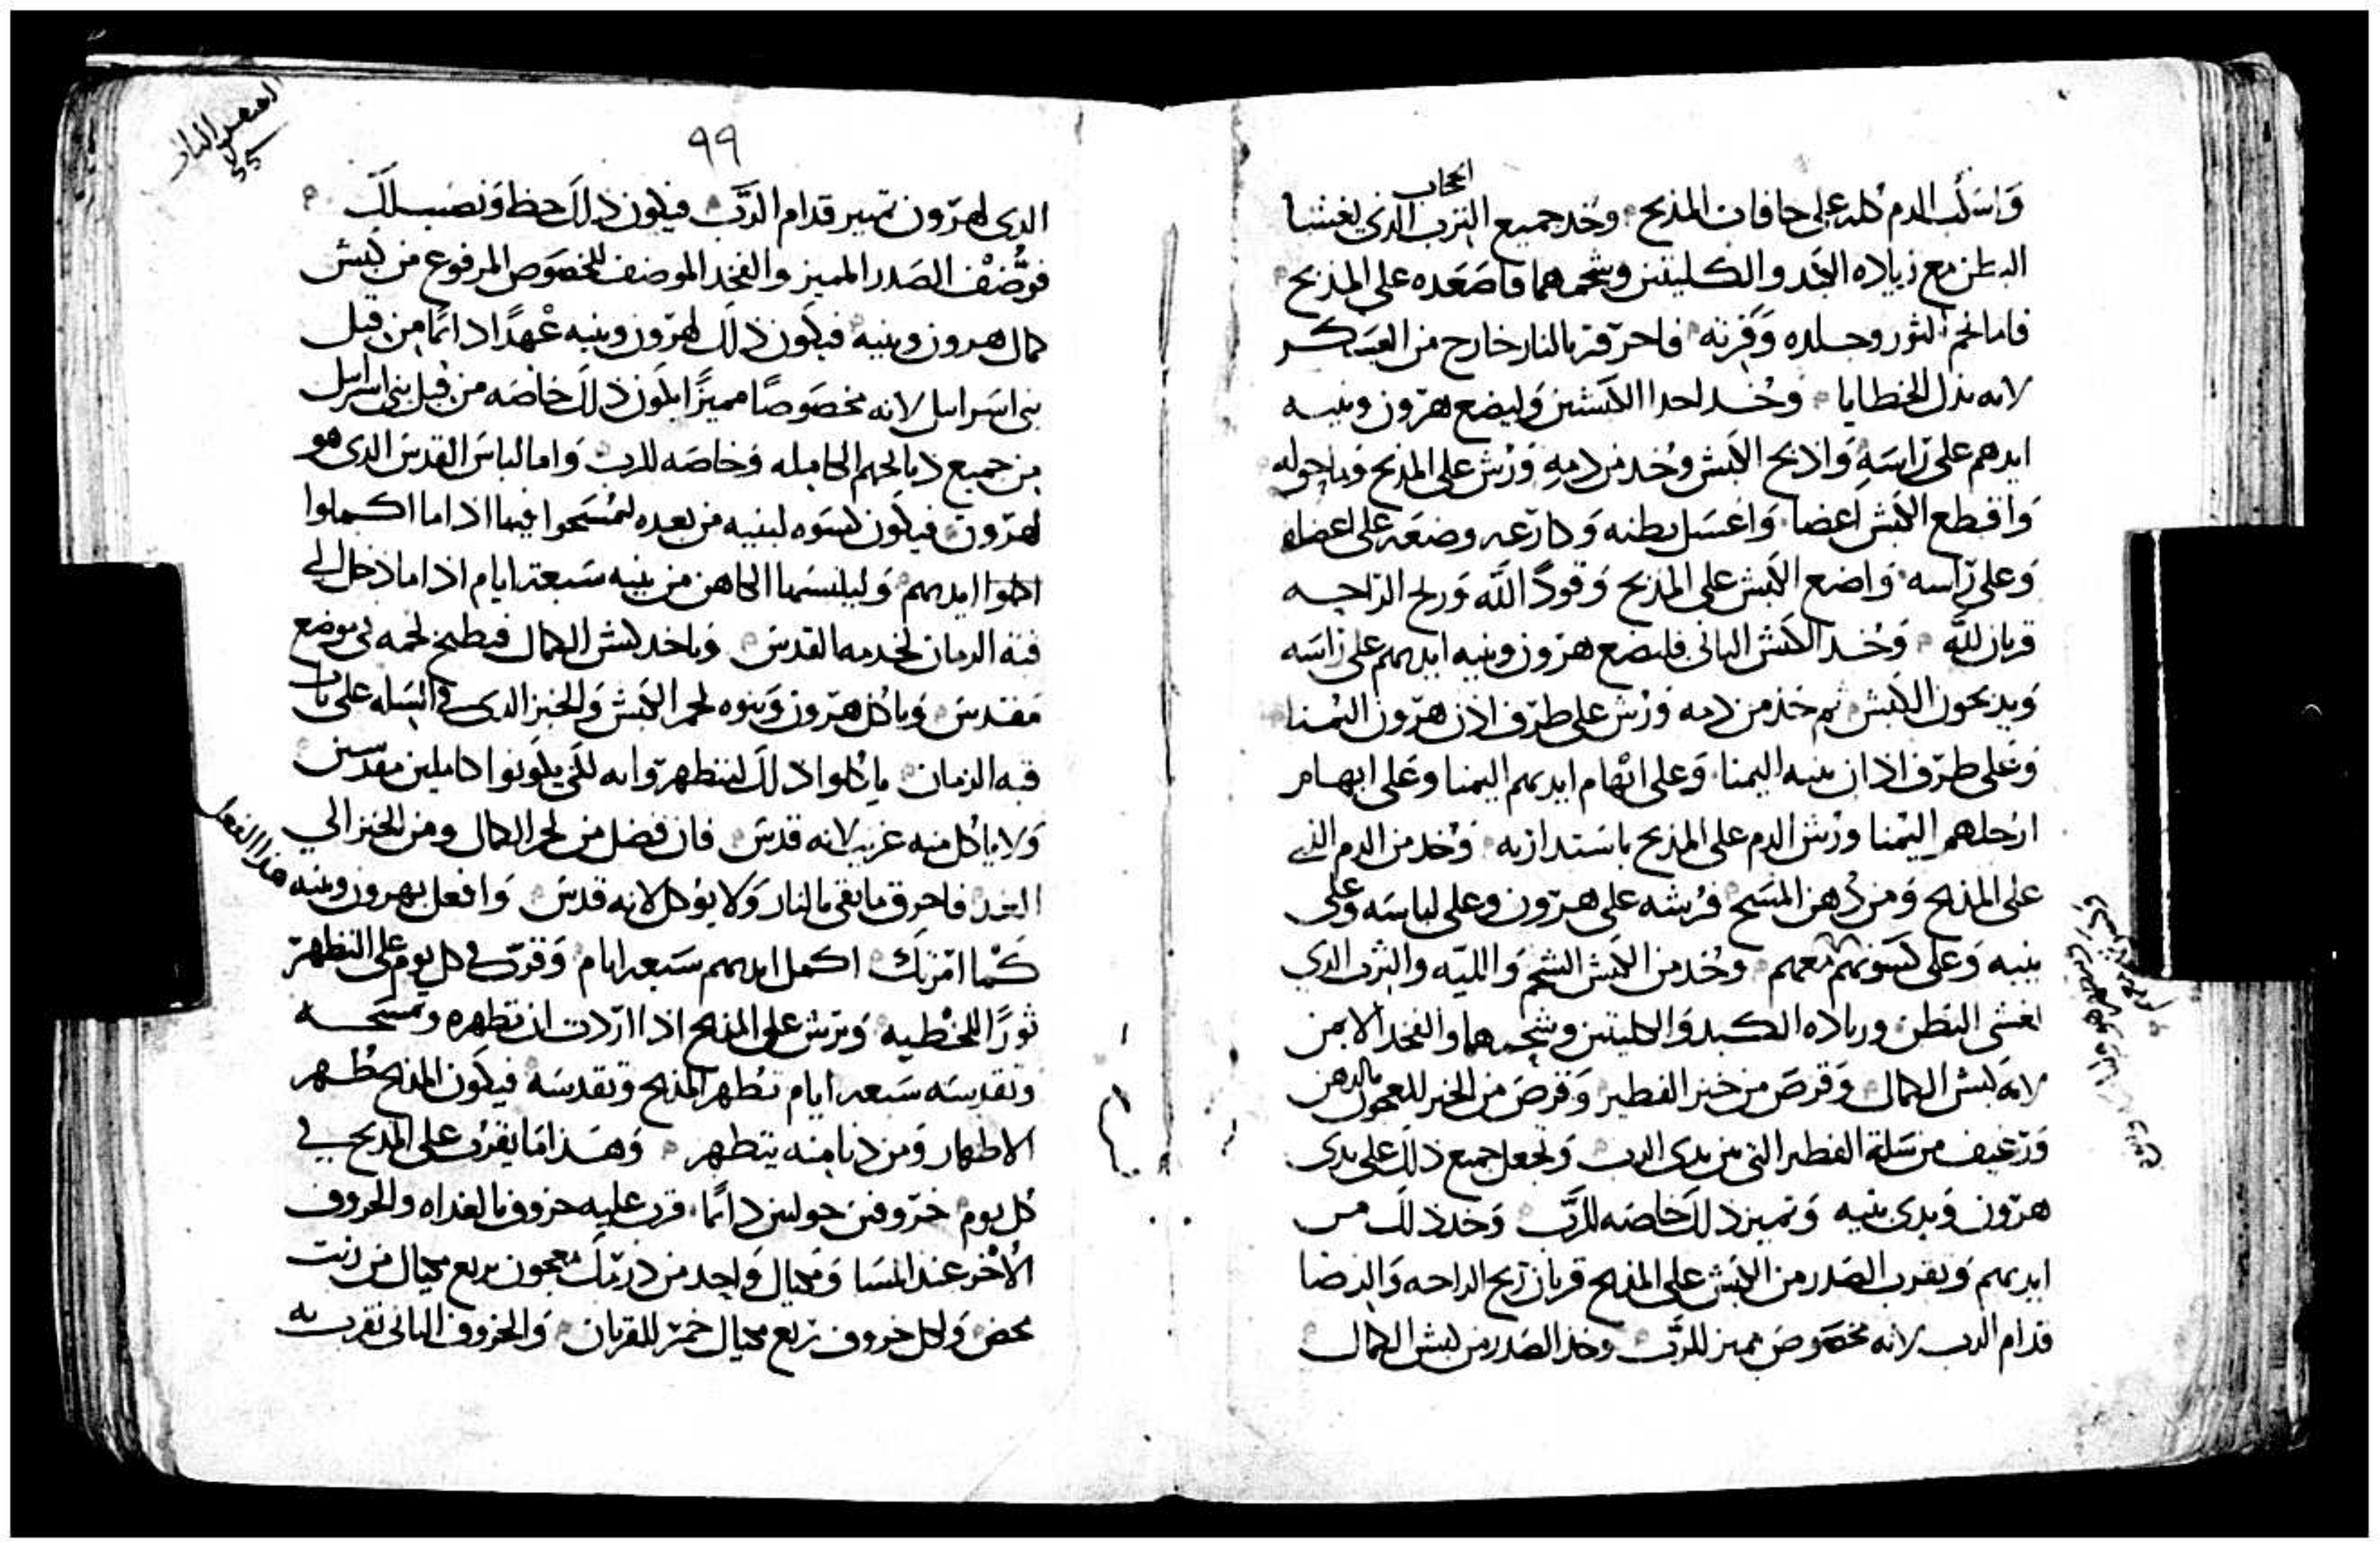 الحجاب
واسكب الدم كله على حافات المذبح وخد جميع الترب الذي يغشا
البطن مع زياده الكبد والكليتين وشحمهما فاصعده على المذبح
فاما لحم الثور وجلده وفرثه فاحرقه بالنار خارج من العسكر
لانه بذل الخطايا وخد احدا الكبشين وليضع هرون وبنيه
ايدهم على راسه واذبح الكبش وخد من دمه ورش على المذبح وما حوله
واقطع الكبش اعضا واغسل بطنه وكارعه وضعه على اعضاه
وعلى راسه واضع الكبش على المذبح وقودا لله وريح الراحه
قربان لله وخد الكبش الثاني فليضع هرون وبنيه ايديهم على راسه
ويذبحون الكبش ثم خذ من دمه ورش على طرف اذن هرون اليمنا
وعلى طرف اذان بنيه اليمنا وعلى ابهام ايديهم اليمنا وعلى ابهام
ارجلهم اليمنا ورش الدم على المذبح باستدارته وخد من الدم الذي
على المذبح ومن دهن المسح فرشه على هرون وعلى لباسه وعلى
بنيه وعلى كسوتهم معهم وخد من الكبش الشحم والليه والثرب الدي
يغشى البطن وزياده الكبد والكليتين وشحمهما والفخد الايمن
لانه كبش الكمال وقرص من خبز الفطير وقرص من الخبز المعجون بالدهن
ورغيف من سلة الفطير التي بين يدي الرب وتجعل جميع ذلك على يدي
هرون ويدي بنيه وتميز ذلك خاصه للرب وخد ذلك من
ايديهم وتقرب الصدر من الكبش على المذبح قربان ريح الراحه والرضا
قدام الرب لانه مخصوص مميز للرب وخذ الصدر من كبش الكمال
٩٩
الدي لهرون تميز قدام الرب فيكون ذلك حظا ونصيب لك
فتوضف الصدر المميز والفخد الموضف المخصوص المرفوع من كبش
كمال هرون وبنيه فيكون ذلك لهرون وبنيه عهدا دايما من قبل
بني اسرايل لانه مخصوصا مميزا يكون ذلك خاصه من قبل بني اسرايل
من جميع ذبايحهم الكامله وخاصه للرب واما لباس القدس الدي هو
لهرون فيكون كسوه لبنيه من بعده ليمسحوا فيها اذا ما اكملوا
ايديهم وليلبسها الكاهن من بنيه سبعة ايام اذا ما دخل الى
قبة الزمان لخدمه القدس وياخد كبش الكمال فيطبخ لحمه في موضع
مقدس وياكل هرون وبنوه لحم الكبش والخبز الدي في السله على باب
قبه الزمان ياكلوا ذلك ليتطهروا به لكي يكونوا كاملين مقدسين
ولا ياكل منه غريب لانه قدس فان فضل من لحم الكمال ومن الخبز الى
الغد فاحرق ما بقي بالنار ولا يوكل لانه قدس وافعل بهرون وبنيه هذا الفعل
كما امرتك اكمل ايديهم سبعه ايام وقرب في كل يوم على التطهر
ثورا للخطيه وترش على المذبح اذا اردت ان تطهره وتمسحه
وتقدسه سبعه ايام تطهر المذبح وتقدسه فيكون المذبح طهر
الاطهار ومن دنا منه يتطهر وهذا ما يقرب على المذبح في
كل يوم خروفين حوليين دايما قرب عليه خروف بالغداه والخروف
الاخر عند المسا ومكيال واحد من درمك معجون بربع مكيال من زيت
محض ولكل خروف ربع مكيال خمر للقربان والخروف الثاني تقرب به